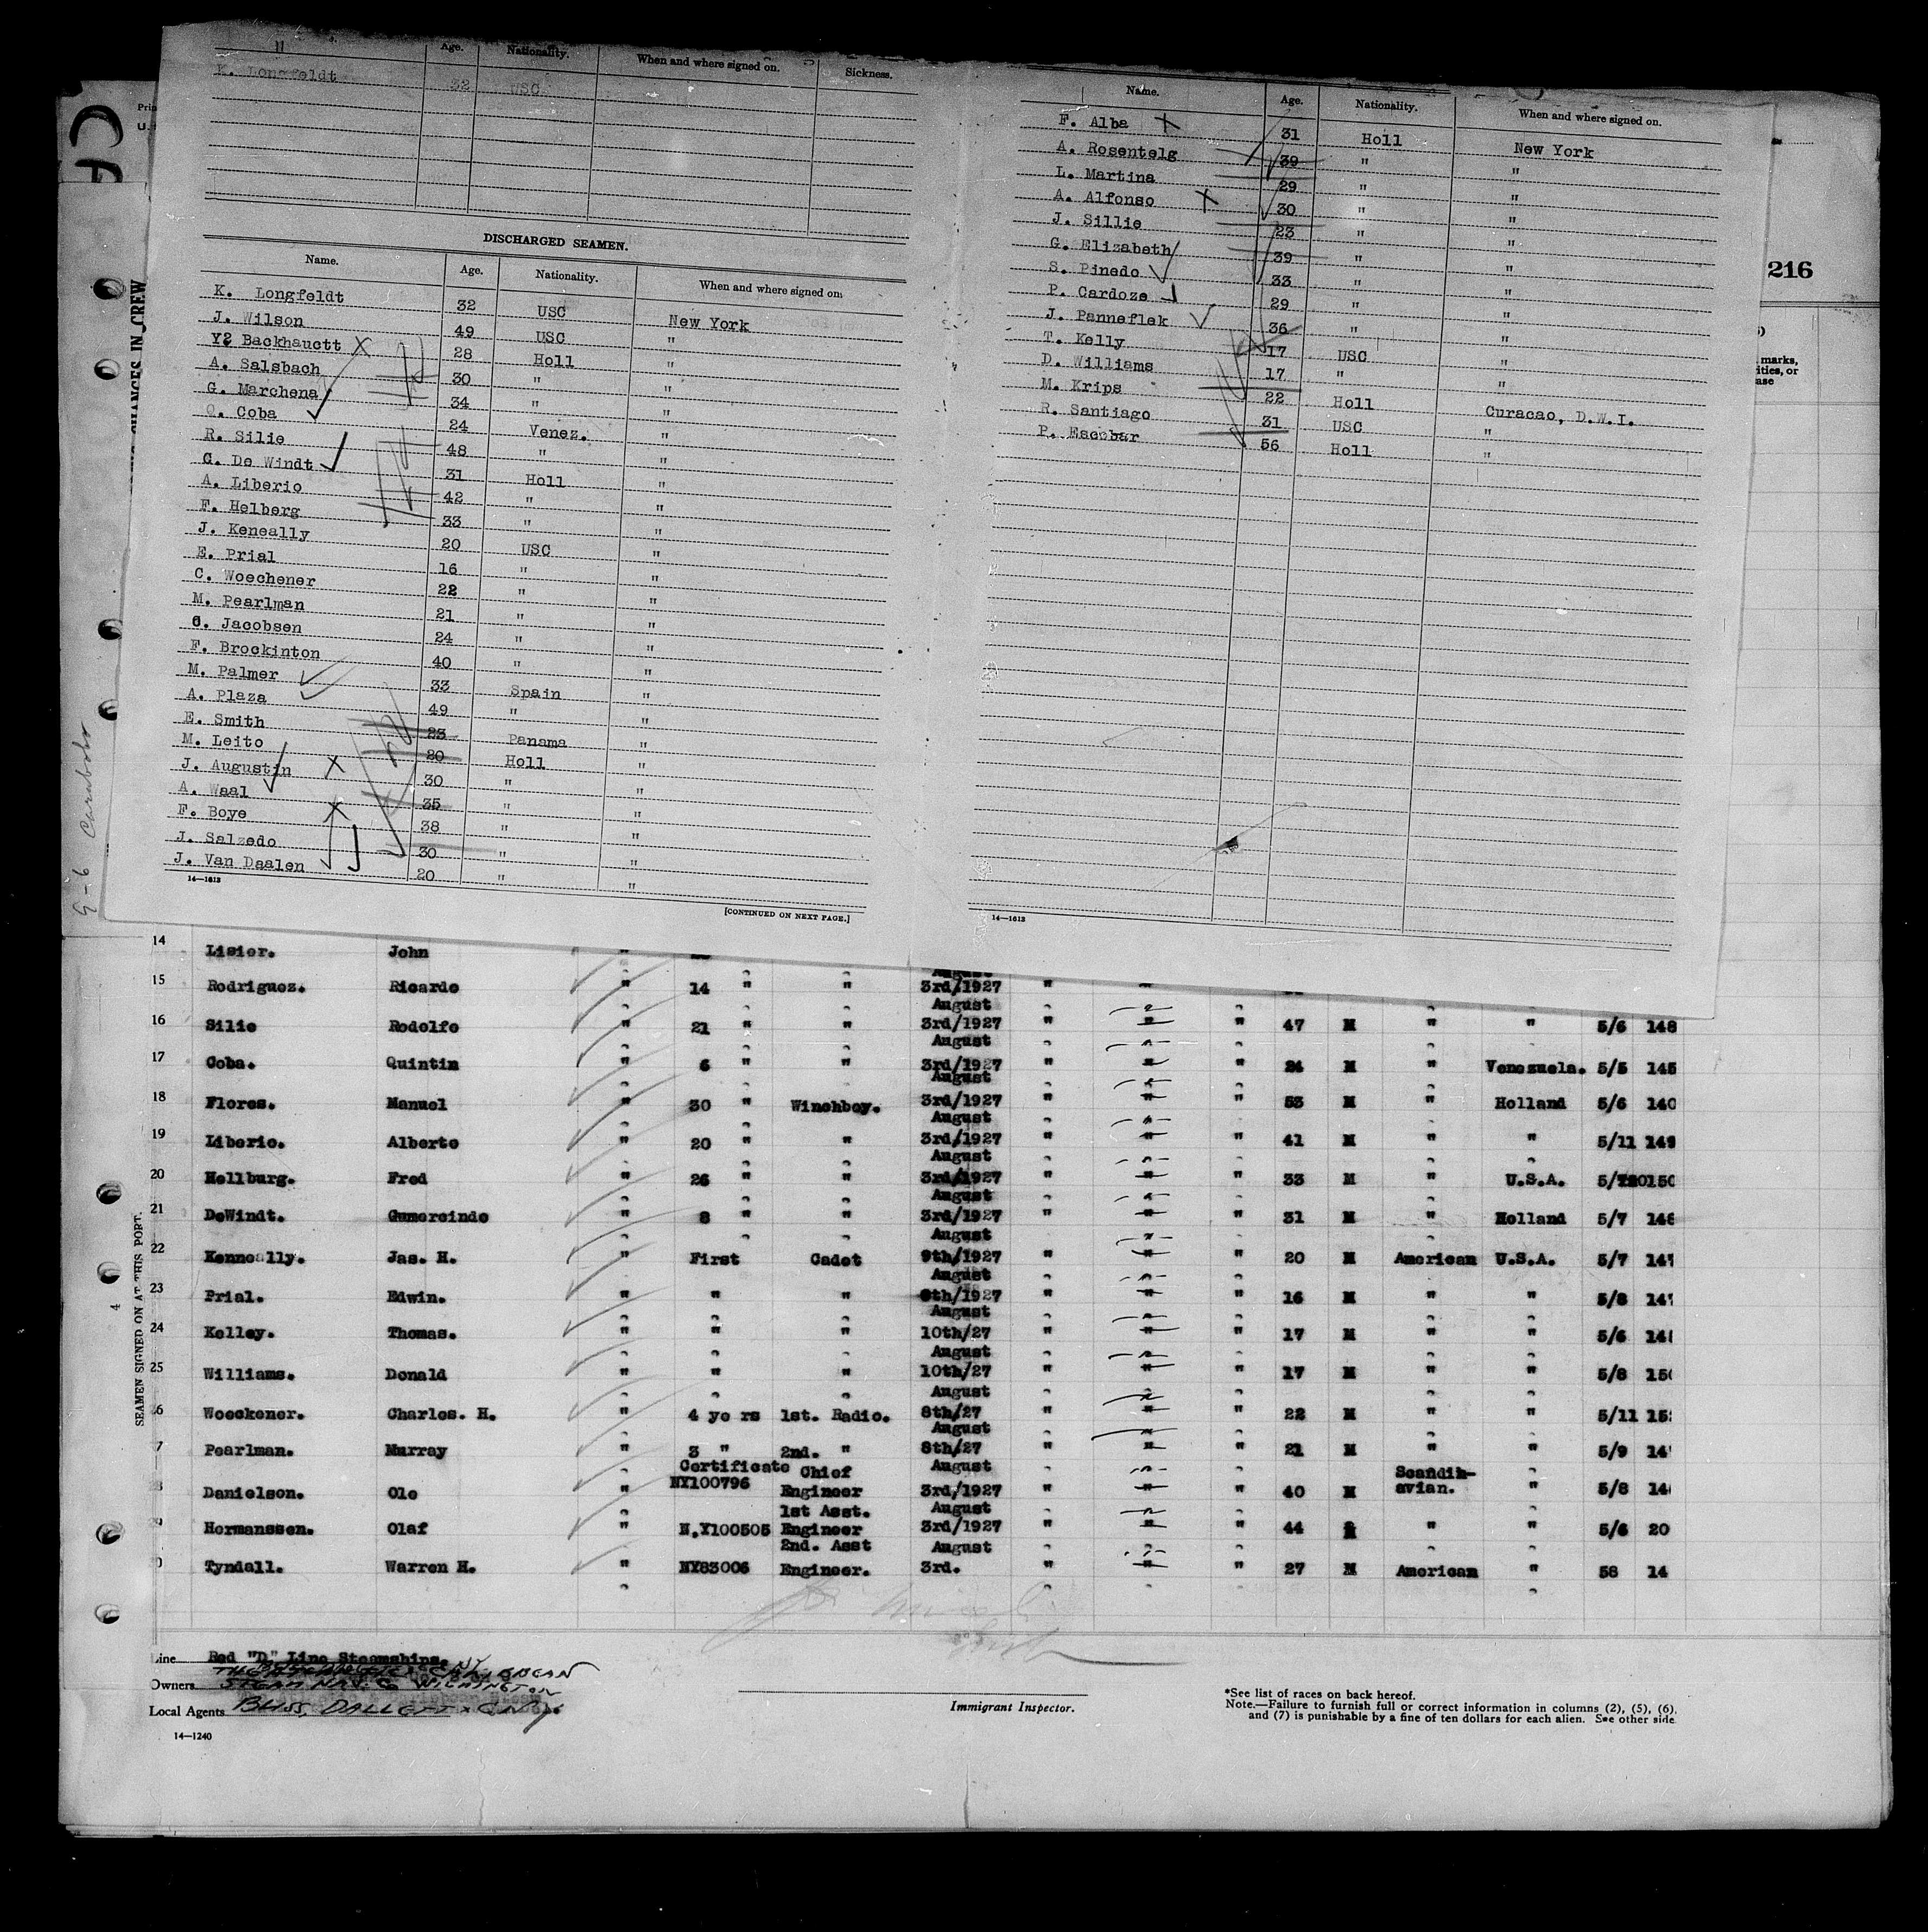 Age. Nationality. When and where signed on. Sickness.
K. Longfeldt 32 USC
DISCHARGED SEAMEN.
Name. Age. Nationality. When and where signed on.
K. Longfeldt 32 USC New York
J. Wilson 49 USC "
Y2 Backhauctt X 28 Holl "
A. Salsbach 30 " "
G. Marchena 34 " "
Q. Coba 24 Venez. "
R. Silie 48 " "
G. De Windt 31 Holl "
A. Liberio 42 " "
F. Helberg 33 " "
J. Keneally 20 USC "
E. Prial 16 " "
C. Woechener 22 " "
M. Pearlman 21 " "
C. Jacobsen 24 " "
F. Brockinton 40 " "
M. Palmer 33 Spain "
A. Plaza 49 " "
E. Smith 23 Panama "
M. Leito 20 Holl "
J. Augustin X 30 " "
A. Waal 35 " "
F. Boye X 38 " "
J. Salzedo 30 " "
J. Van Daalen 20 " "
14—1613
[CONTINUED ON NEXT PAGE.]
Name. Age. Nationality. When and where signed on.
F. Alba X 31 Holl New York
A. Rosentelg 39 " "
L. Martina 29 " "
A. Alfonso X 30 " "
J. Sillie 23 " "
G. Elizabeth 39 " "
S. Pinedo 33 " "
P. Cardoze 29 " "
J. Panneflek 36 " "
T. Kelly 17 USC "
D. Williams 17 " "
M. Krips 22 Holl Curacao, D.W.I.
R. Santiago 31 USC "
P. Escobar 56 Holl "
14—1613
216
CHANGES IN CREW
SEAMEN SIGNED ON AT THIS PORT.
4
G-6 Carabobo
14 Lisier. John "
15 Rodriguez. Ricardo " 14 " " August 3rd/1927 " " "
16 Silie Rodolfo " 21 " " August 3rd/1927 " " " 47 M " " 5/6 148
17 Coba. Quintin " 6 " " August 3rd/1927 " " " 24 M " Venezuela. 5/5 145
18 Flores. Manuel " 30 " Winchboy. August 3rd/1927 " " " 53 M " Holland 5/6 140
19 Liberio. Alberto " 20 " " August 3rd/1927 " " " 41 M " " 5/11 149
20 Hellburg. Fred " 26 " " August 3rd/1927 " " " 33 M " U.S.A. 150
21 DeWindt. Gumercindo " 8 " " August 3rd/1927 " " " 31 M " Holland 5/7 146
22 Kenneally. Jas. H. " First Cadet August 9th/1927 " " " 20 M American U.S.A. 5/7 147
23 Prial. Edwin. " " " August 8th/1927 " " " 16 M " " 5/8 147
24 Kelley. Thomas. " " " August 10th/27 " " " 17 M " " 5/6 14
25 Williams. Donald " " " August 10th/27 " " " 17 M " " 5/8 15
26 Woeckener. Charles. H. " 4 ye rs 1st. Radio. August 8th/27 " " " 22 M " " 5/11 15
7 Pearlman. Murray " 3 " 2nd. " August 8th/27 " " " 21 M " " 5/9 14
Danielson. Ole " Certificate NY100796 Chief Engineer August 3rd/1927 " " " 40 M Scandinavian. " 5/8 14
Hermanssen. Olaf " N.Y100505 1st Asst. Engineer August 3rd/1927 " " " 44 M " " 5/6 20
0 Tyndall. Warren H. " NY83006 2nd. Asst Engineer. August 3rd. " " " 27 M American " 58 14
Line Red "D" Line Steamships. NY
Owners STEAM NAV. Co WILMINGTON
Local Agents BLISS, DALLETT & Co NY.
14—1240
Immigrant Inspector.
*See list of races on back hereof.
Note.—Failure to furnish full or correct information in columns (2), (5), (6),
and (7) is punishable by a fine of ten dollars for each alien. See other side.